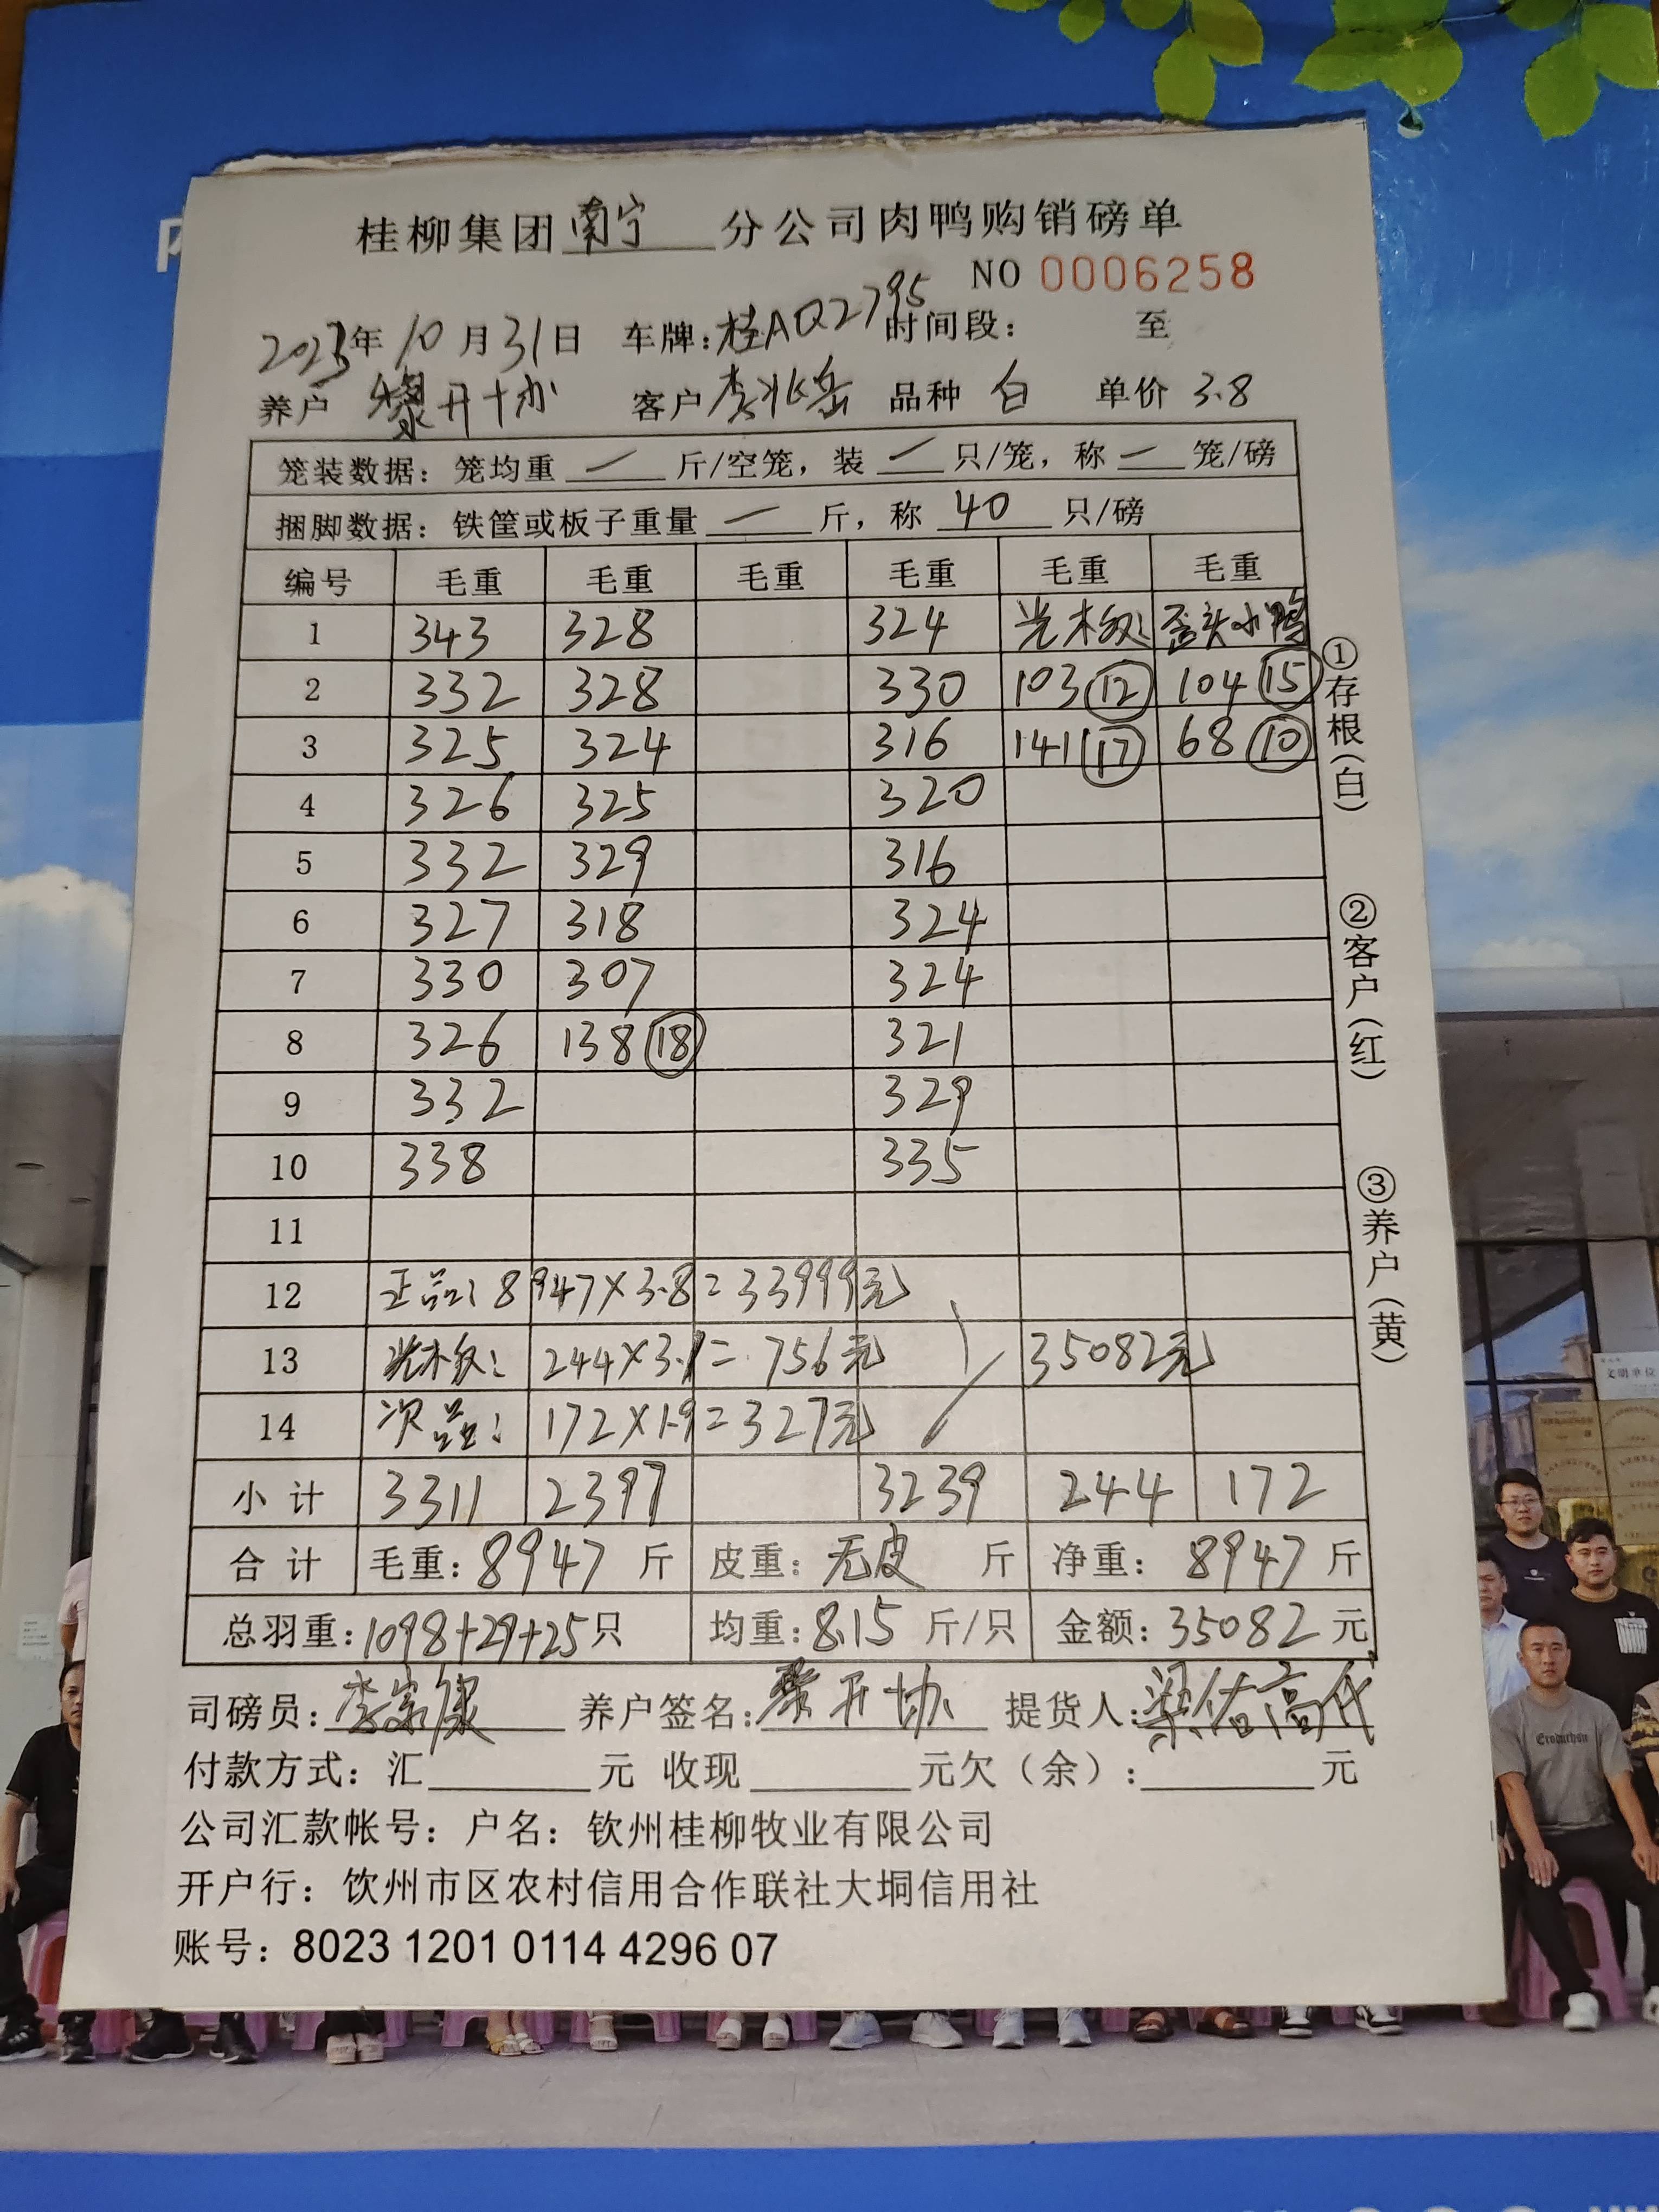 桂柳集团南宁分公司肉鸭购销磅单
NO 0006258
2023年10月31日 车牌:桂AQ2795 时间段: 至
养户 黎开协 客户 李兆岳 品种 白 单价 3.8
笼装数据:笼均重 一 斤/空笼,装 一 只/笼,称 一 笼/磅
捆脚数据:铁筐或板子重量 一 斤,称 40 只/磅
编号 毛重 毛重 毛重 毛重 毛重 毛重
1 343 328 324 光木级: 歪头小鸭
2 332 328 330 103 ⑫ 104 ⑮
3 325 324 316 141 ⑰ 68 ⑩
4 326 325 320
5 332 329 316
6 327 318 324
7 330 307 324
8 326 138 ⑱ 321
9 332 329
10 338 335
11
12 正品:8947×3.8=33999元
13 光木级:244×3.1=756元 35082元
14 次品:172×1.9=327元
小计 3311 2397 3239 244 172
合计 毛重:8947斤 皮重:无皮 斤 净重:8947斤
总羽重:1098+29+25只 均重:8.15斤/只 金额:35082元
司磅员:李宗康 养户签名:黎开协 提货人:梁佑高代
付款方式:汇 元 收现 元欠(余): 元
公司汇款帐号:户名:钦州桂柳牧业有限公司
开户行:饮州市区农村信用合作联社大垌信用社
账号:8023 1201 0114 4296 07
①存根(白)
②客户(红)
③养户(黄)
文明单位